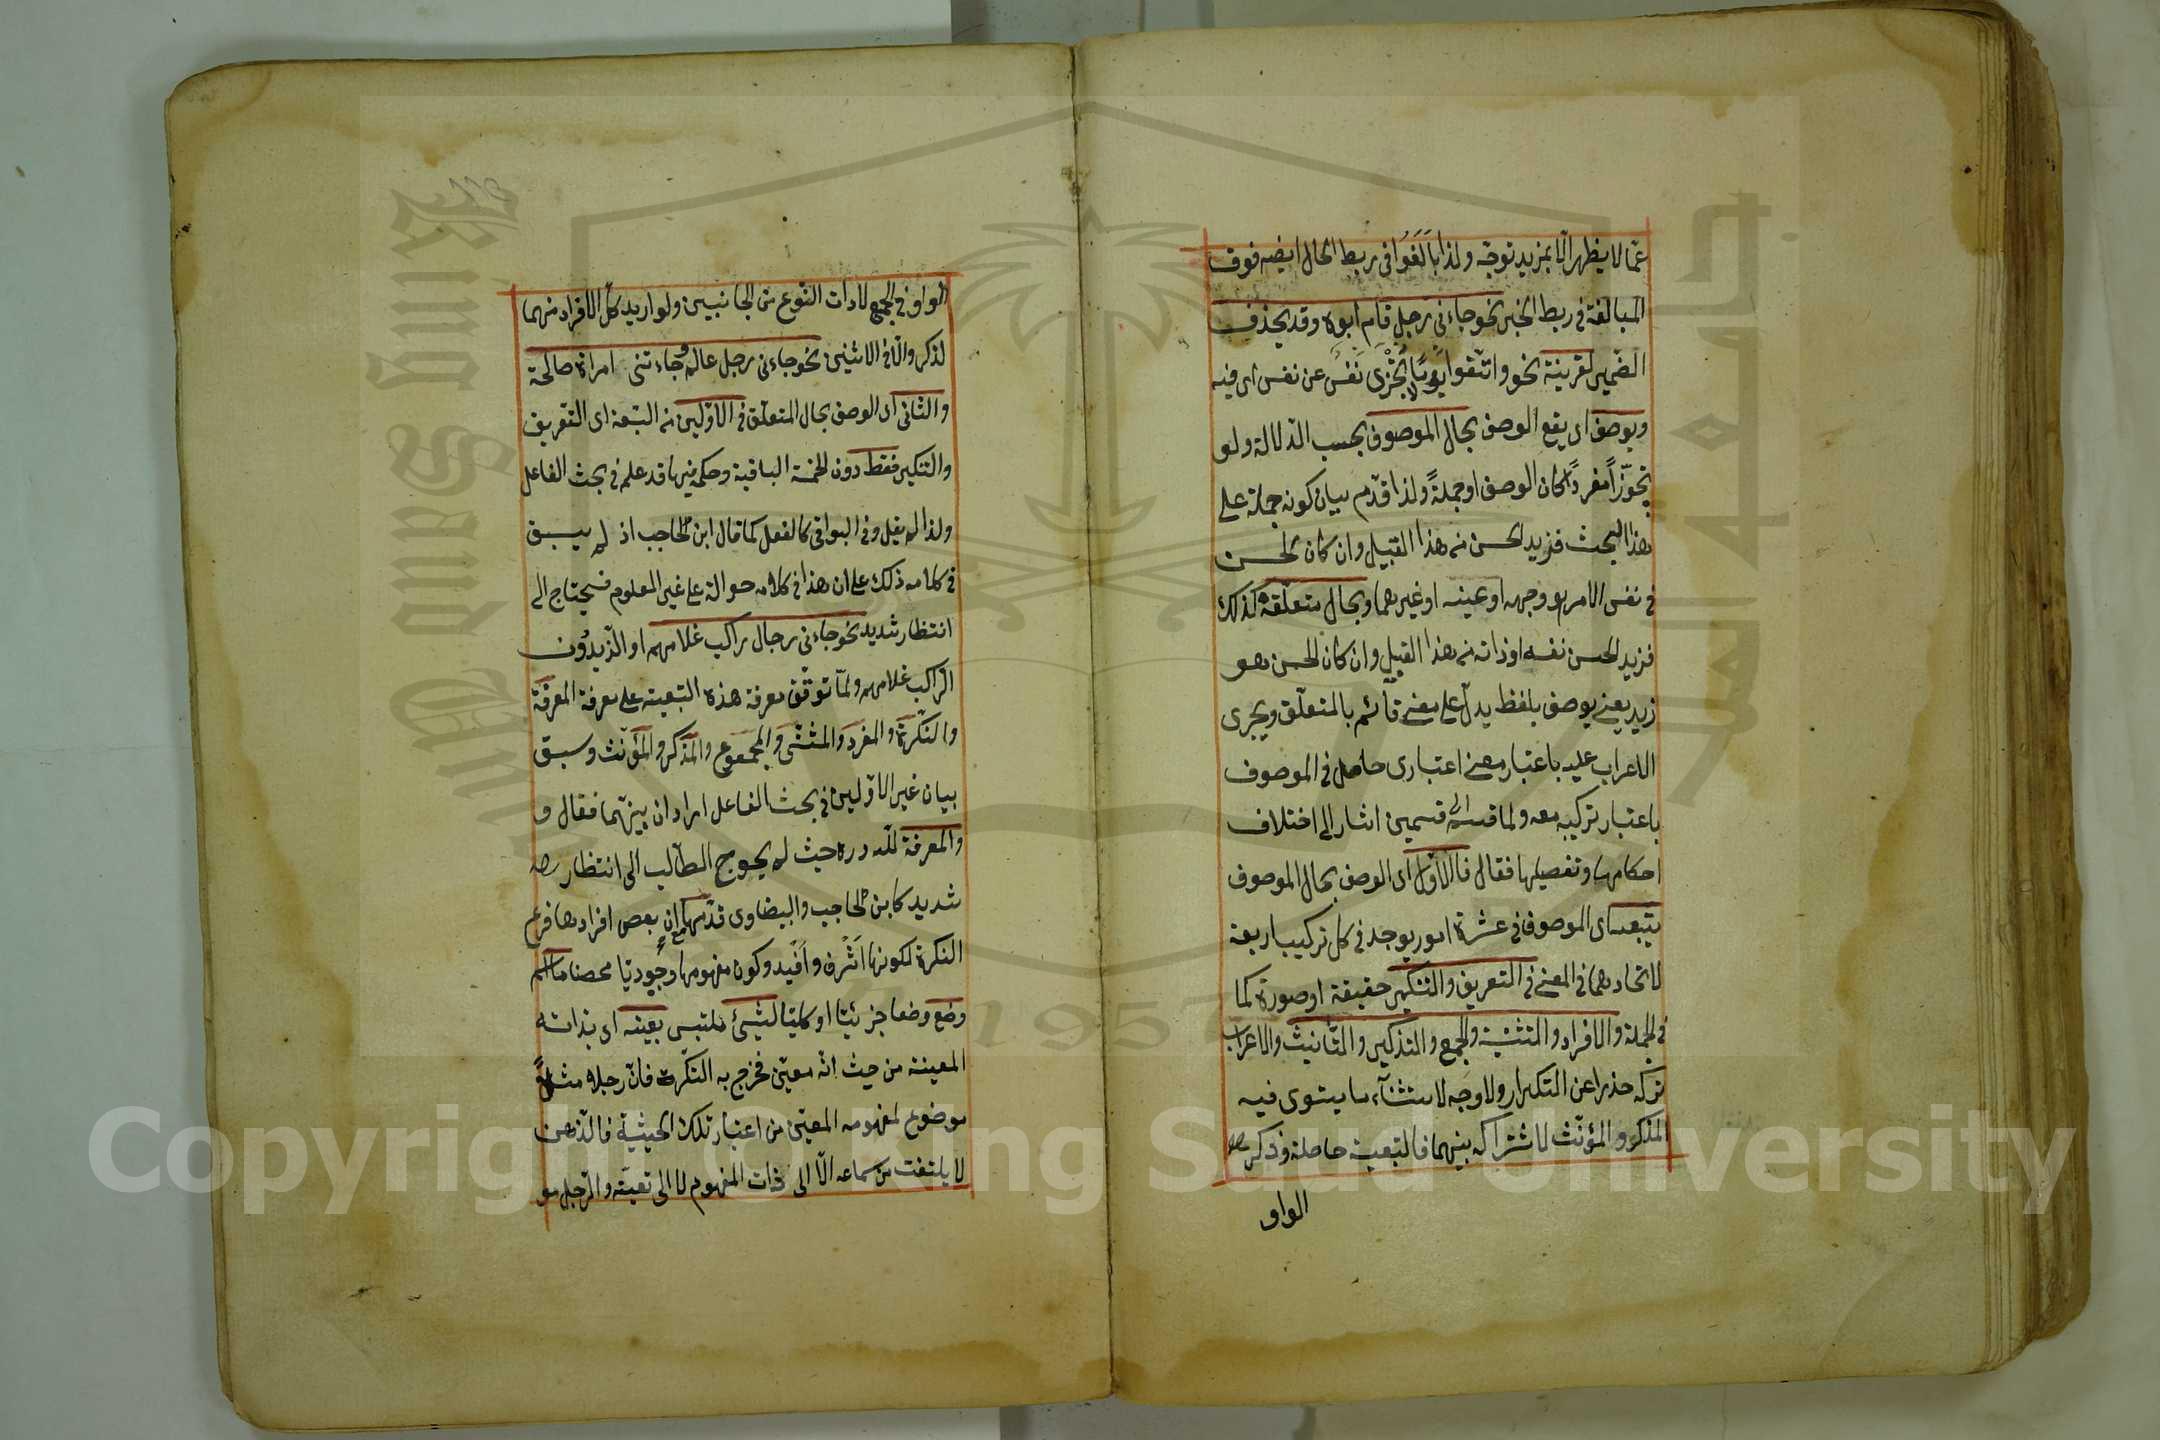 عمّا لا يظهر الّا بمزيد توجّه ولذا بالَغَوُا في ربط الحال ايضه فوف
المبالغة في ربط الخبر نحو جاءني رجل قام ابوه وقد يحذف
الضمير لقرينة نحو واتّقوا يومًا لا تَجْزِى نَفْسٌ عن نفس اى فيه
ويوصف اى يقع الوصف بحال الموصوف بحسب الدّلالة ولو
تجوّزاً مفرداً كان الوصف او جملةً ولذا قدّم بيان كونه جملة على
هذا البحث فزيد الحسن من هذا القبيل وان كان الحسن
في نفس الامر هو وجهه او عينه او غيرهما وبحال متعلّقه كذلك
فزيد الحسن نفسه او ذاته من هذا القبيل وان كان الحسن هو
زيد يعني يوصف بلفظ يدلّ على معنى قائم بالمتعلّق ويجرى
الاعراب عليه باعتبار معنى اعتبارى حاصل في الموصوف
باعتبار تركيبه معه ولما قسمه الى قسمين اشار الى اختلاف
احكامهما وتفصيلها فقال فالاوّل اى الوصف بحال الموصوف
يتبعه اى الموصوف في عشرة امور يوجد في كل تركيب اربعة
لاتحادهما في المعنى في التعريف والتنكير حقيقة او صورة كما
في الجملة والافراد والتثنية والجمع والتذكير والتانيث والاعراب
تركه حذرا عن التكرار ولا وجه لاستثناء ما يستوى فيه
المذكر والمؤنّث لاشتراكه بينهما فالتبعية حاصلة وذكر
الواو
الواو في الجمع لادات النّوع من الجانبين ولو اريد كلّ الافراد منهما
لذكر والّا في الاثنين نحو جاءني رجل عالم وجاءتنى امراة صالحة
والثانى اى الوصف بحال المتعلّق في الاوّلين من التبعة اى التعريف
والتنكير فقط دون الخمسة الباقية وحكم غيرها قد علم في بحث الفاعل
ولذا لم يقل وفي البواقى كالفعل كما قال ابن الحاجب اذ لم يسبق
في كلامه ذلك على ان هذا في كلامه حوالة على غير المعلوم فيحتاج الى
انتظار شديد نحو جاءني رجال راكب غلامهم او الزّيدُون
الرّاكب غلامهم ولمّا توقّف معرفة هذه التبعية على معرفة المعرفة
والنّكرة والمفرد والمثنّى والمجموع والمذكر والمؤنّث وسبق
بيان غير الاوّلين في بحث الفاعل اراد ان يبيّنهما فقال و
والمعرفة للّه درّه حيث لم يحوج الطالب الى انتظار
شديد كابن الحاجب والبيضاوى قدّمها مع ان بعض افرادها فرع
النكرة لكونها اَشْرف واَفْيد وكون مفهومها وجوديّا محضا ما اسم
وضع وضعا جزئيّا او كليّا لشيئ ملتبس بعينه اى بذاته
المعينة من حيث انّه معيّن فخرج به النكرة فانّ رجلا مثلاً
موضوع لمفهومه المعيّن من اعتبار تلك الحيثية فالذّهن
لا يلتفت من سماعه الّا الى ذات المفهوم لا الى تعيّنه والرّجل مو
Copyright © King Saud University
King Saud University
1957